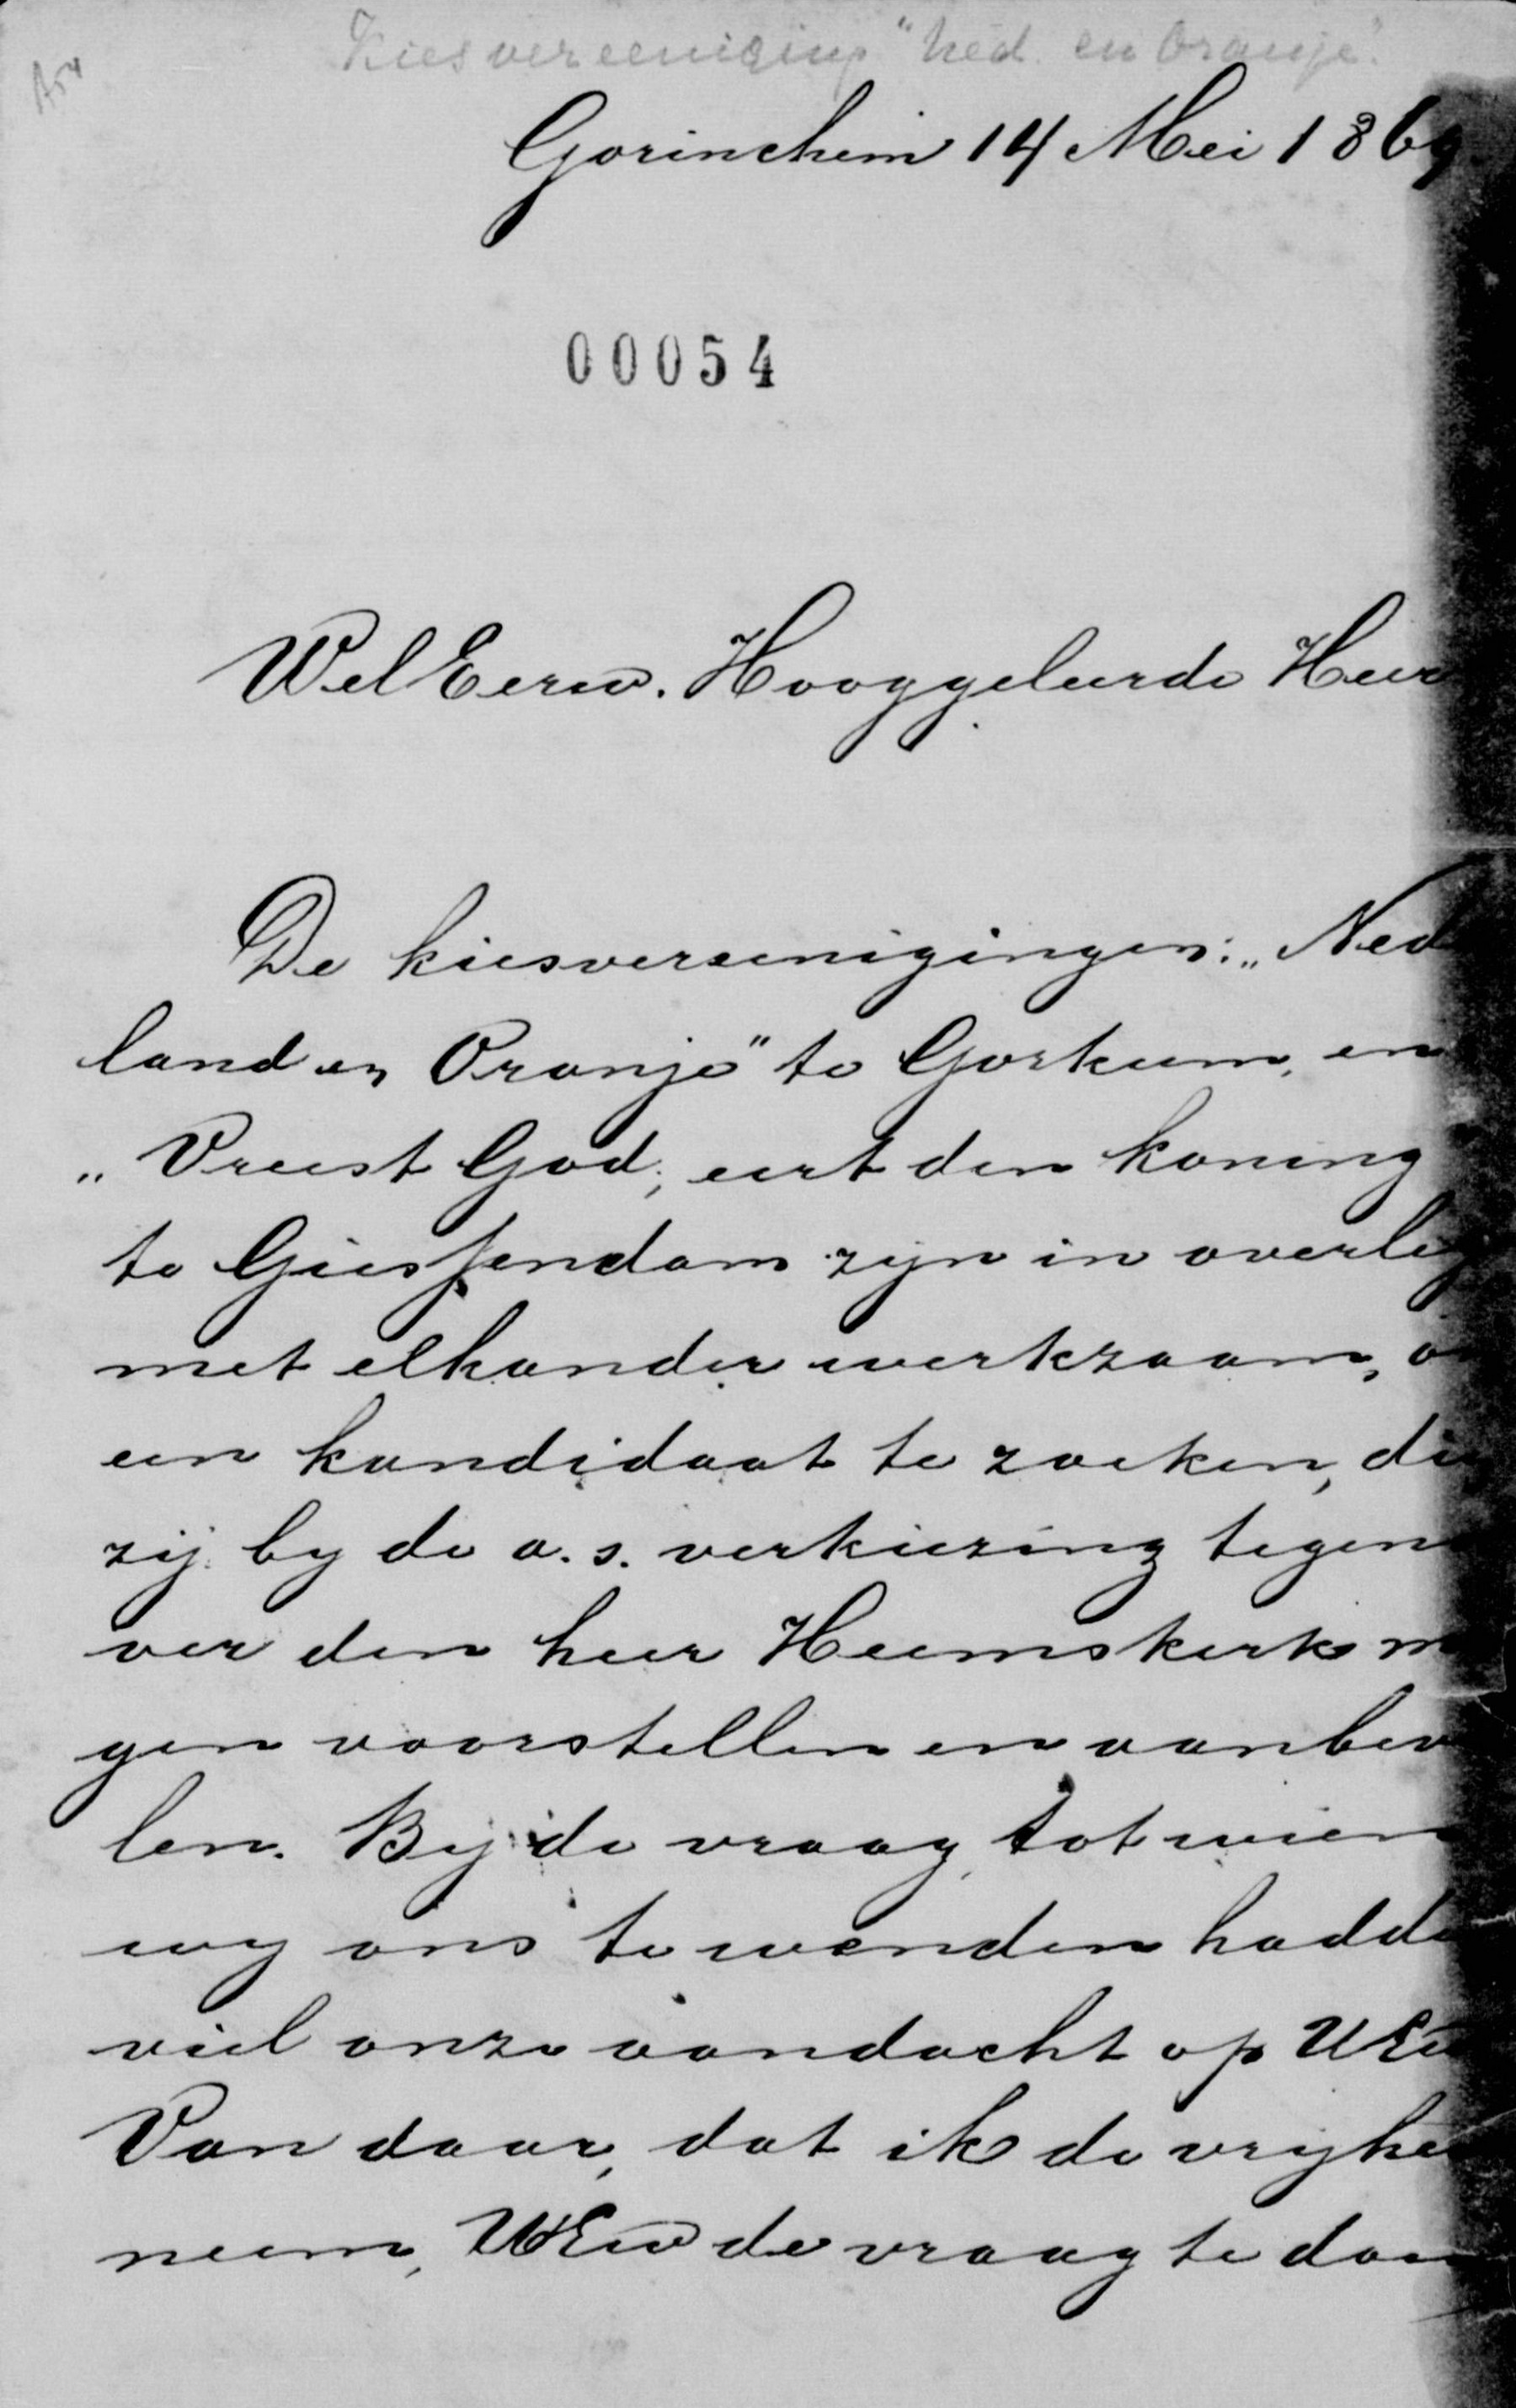 Kiesvereeniging "Ned. en Oranje".
A54
Gorinchem 14 Mei 1869
00054
WelEerw. Hooggeleerde Heer
De kiesvereenigingen: „Ned
land en Oranje" te Gorkum, en
„Vreest God, eert den koning
te Giessendam zijn in overleg
met elkander werkzaam, o
een kandidaat te zoeken, die
zij by de a.s. verkiezing tegen
ver den heer Heemskerk m
gen voorstellen en aanbev
len. By de vraag, tot wien
wy ons te wenden hadde
viel onze aandacht op UEw
Van daar, dat ik de vryhe
neem, UwEw de vraag te doen